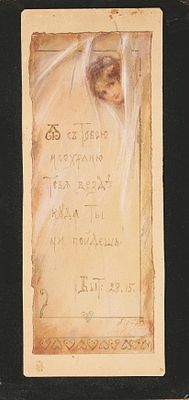 Я съ Тобою
и сохраню
тебя вездѣ
куда ты
ни пойдешь
Быт: 28.15.